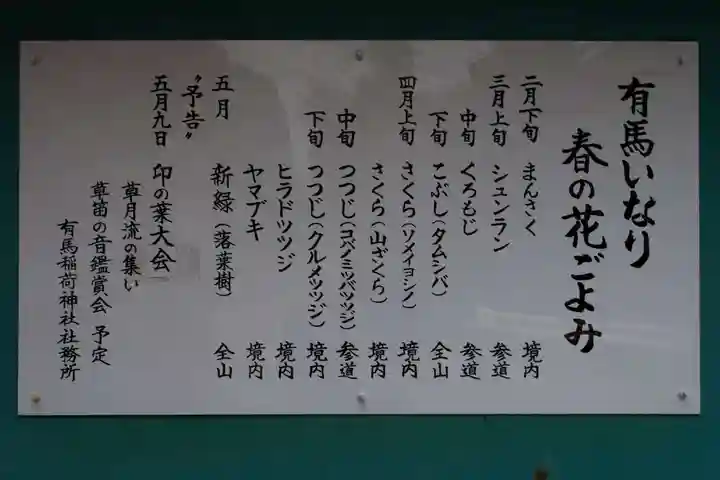 有馬いなり
春の花ごよみ
二月下旬 まんさく 境内
三月上旬 シュンラン 参道
中旬 くろもじ 参道
下旬 こぶし(タムシバ) 全山
四月上旬 さくら(ソメイヨシノ) 境内
さくら(山ざくら) 境内
中旬 つつじ(コバノミツバツツジ) 参道
下旬 つつじ(クルメツツジ) 境内
ヒラドツツジ 境内
ヤマブキ 境内
五月 新緑(落葉樹) 全山
"予告"
五月九日 印の葉大会
草月流の集い
草笛の音鑑賞会 予定
有馬稲荷神社社務所